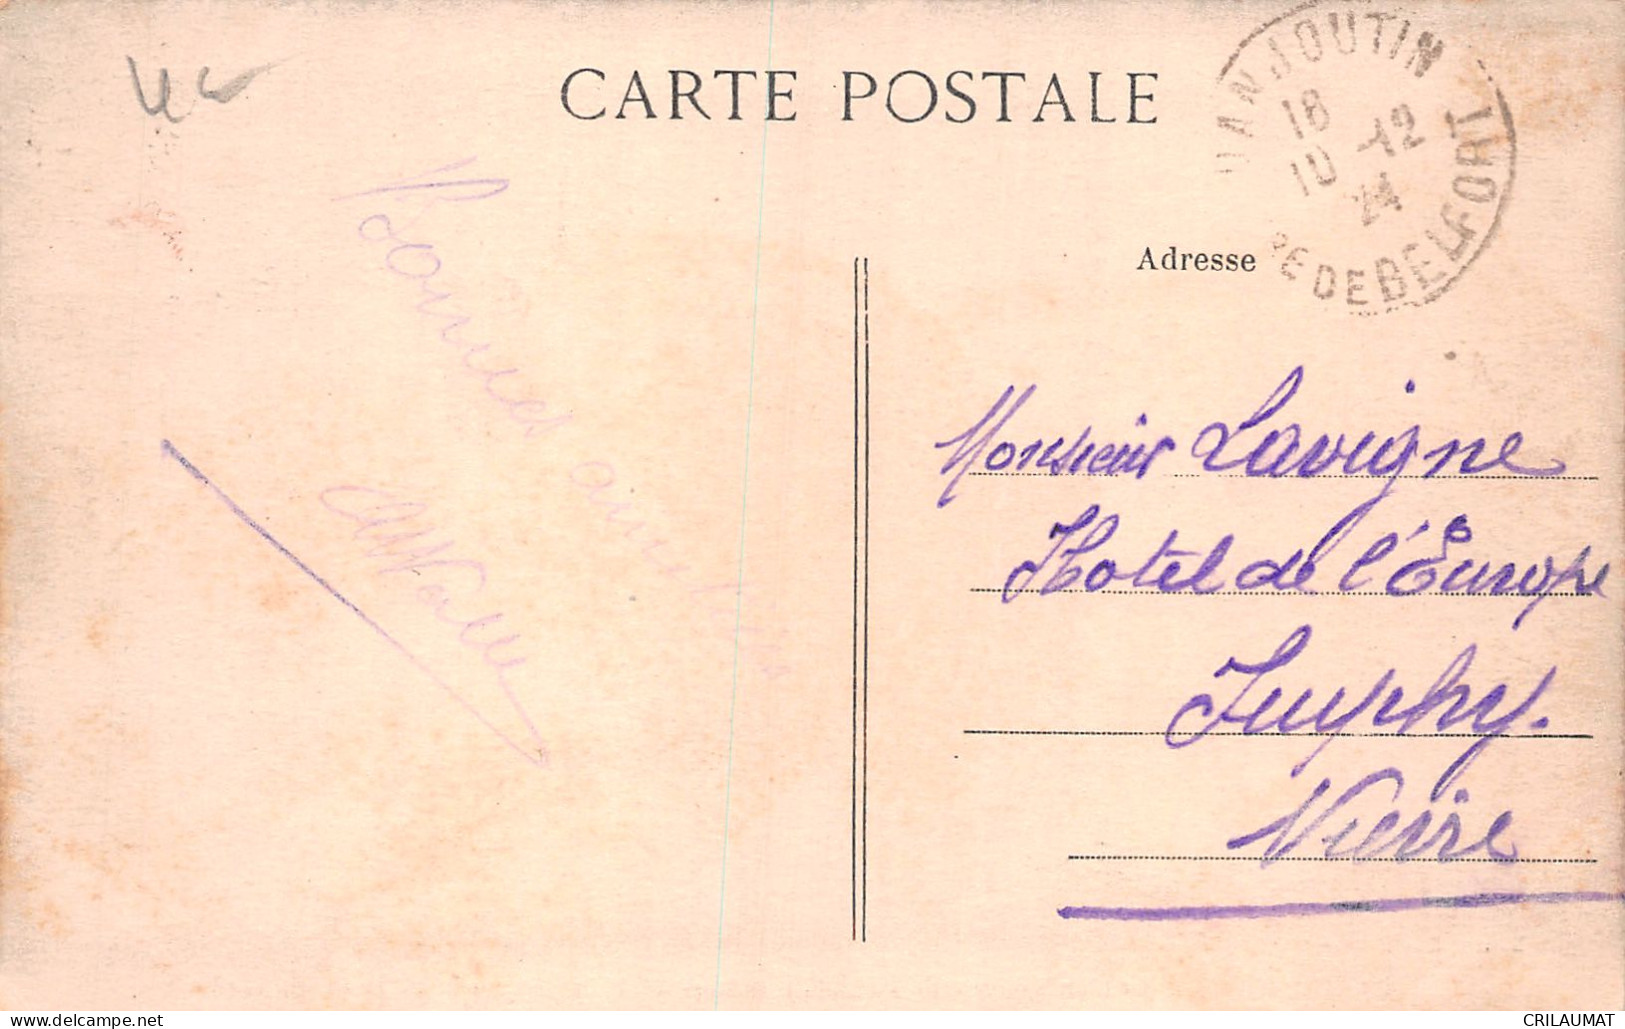 CARTE POSTALE
DANJOUTIN
18
10 -12
24
RE DE BELFORT
Adresse
Bonnes amitiés
Monsieur Lavigne
Hotel de l'Europe
Imphy.
Nièvre
www.delcampe.net
CRILAUMAT